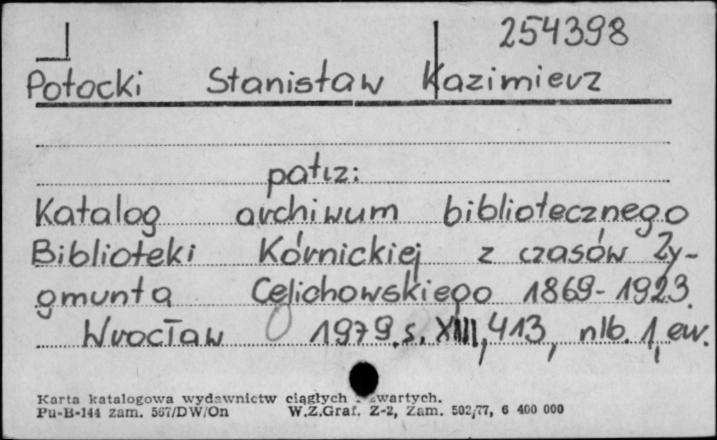 254398
Potocki Stanisław Kazimierz
patrz:
Katalog archiwum bibliotecznego
Biblioteki Kórnickiej z czasów Zy-
gmunta Celichowskiego 1869-1923.
Wrocław 1979, s. XIII, 413, nlb. 1, err.
Karta katalogowa wydawnictw ciągłych i zwartych.
Pu-B-144 zam. 567/DW/On W.Z.Graf. Z-2, Zam. 502/77, 6 400 000